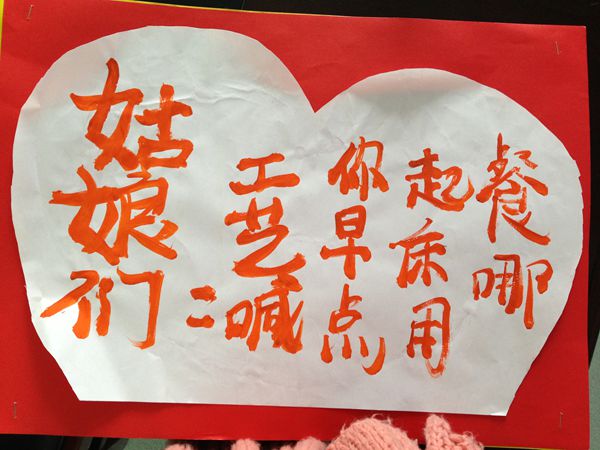 姑娘们：
工艺喊
你早点
起床用
餐哪